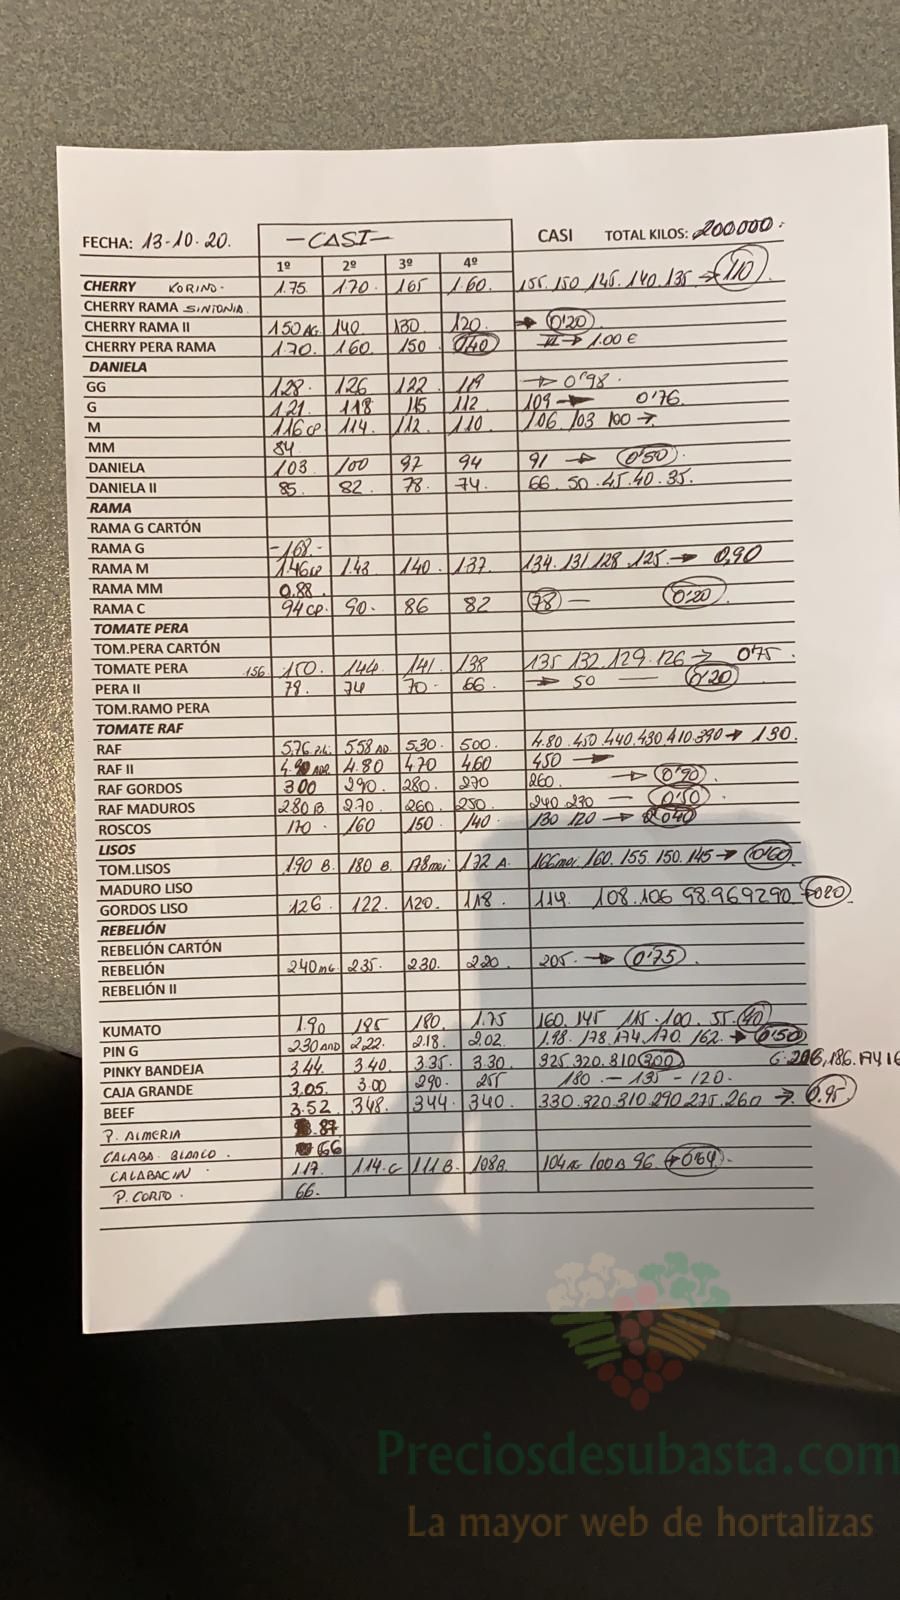 FECHA: 13-10-20. -CASI- CASI TOTAL KILOS: 200000.
1º 2º 3º 4º
CHERRY KORINO. 1.75 1.70. 165 1.60. 155. 150 145. 140. 135 → 110
CHERRY RAMA SINTONIA.
CHERRY RAMA II 150 AG. 140. 130. 120. → 0'20
CHERRY PERA RAMA 170. 160. 150 140 II → 1.00 €
DANIELA
GG 128. 126 122. 119 → 0'98.
G 121. 118 115 112 109 → 0'76.
M 116 CP 114. 112. 110. 106. 103 100 →.
MM 84.
DANIELA 103 100 97 94 91 → 0'50.
DANIELA II 85. 82. 78. 74. 66. 50. 45. 40. 35.
RAMA
RAMA G CARTÓN
RAMA G -168.-
RAMA M 1.46 CP 1.43 140. 137. 134. 131 128. 125. → 0,90
RAMA MM 0.88.
RAMA C 94 CP. 90. 86 82 78 — 0'20.
TOMATE PERA
TOM.PERA CARTÓN
TOMATE PERA 156 150. 144. 141. 138 135 132. 129. 126 → 0'75.
PERA II 78. 74 70. 66. → 50 — 0'20
TOM.RAMO PERA
TOMATE RAF
RAF 5,76 5.58 AD. 5.30. 500. 4.80. 450. 440. 430. 410. 390 → 130.
RAF II 4.90 4.80 470 460 450 →
RAF GORDOS 300 290. 280. 270 260. → 0'90.
RAF MADUROS 280 B 270. 260. 250. 240. 230 — 0'50.
ROSCOS 170. 160 150. 140. 130 120 → 0'40
LISOS
TOM.LISOS 190 B. 180 B. 178 moi 172 A. 166 moi. 160. 155. 150. 145 → 0'60.
MADURO LISO
GORDOS LISO 126. 122. 120. 118. 114. 108. 106 98. 96 92 90 → 0'20
REBELIÓN
REBELIÓN CARTÓN
REBELIÓN 240 235. 230. 220. 205. → 0'75.
REBELIÓN II
KUMATO 1.90 185 180. 1.75 160. 145 115. 100. 55. 40.
PIN G 230 AND 2.22. 2.18. 2.02. 1.98. 178. 174. 170. 162. → 0'50
PINKY BANDEJA 3.44. 3.40. 3.35. 3.30 325. 320. 310 300 G. 206, 186. 174, 16
CAJA GRANDE 3.05. 3.00 290. 255 180 — 135 — 120.
BEEF 3.52. 348. 344. 340. 330. 320. 310. 290 275. 260 → 0.95
P. ALMERIA 87
CALABA. BLANCO. 66
CALABACIN 1.17. 114. C 111 B. 108 B. 104 AG 100 B 96. → 0'64.
P. CORTO. 66.
Preciosdesubasta.com
La mayor web de hortalizas